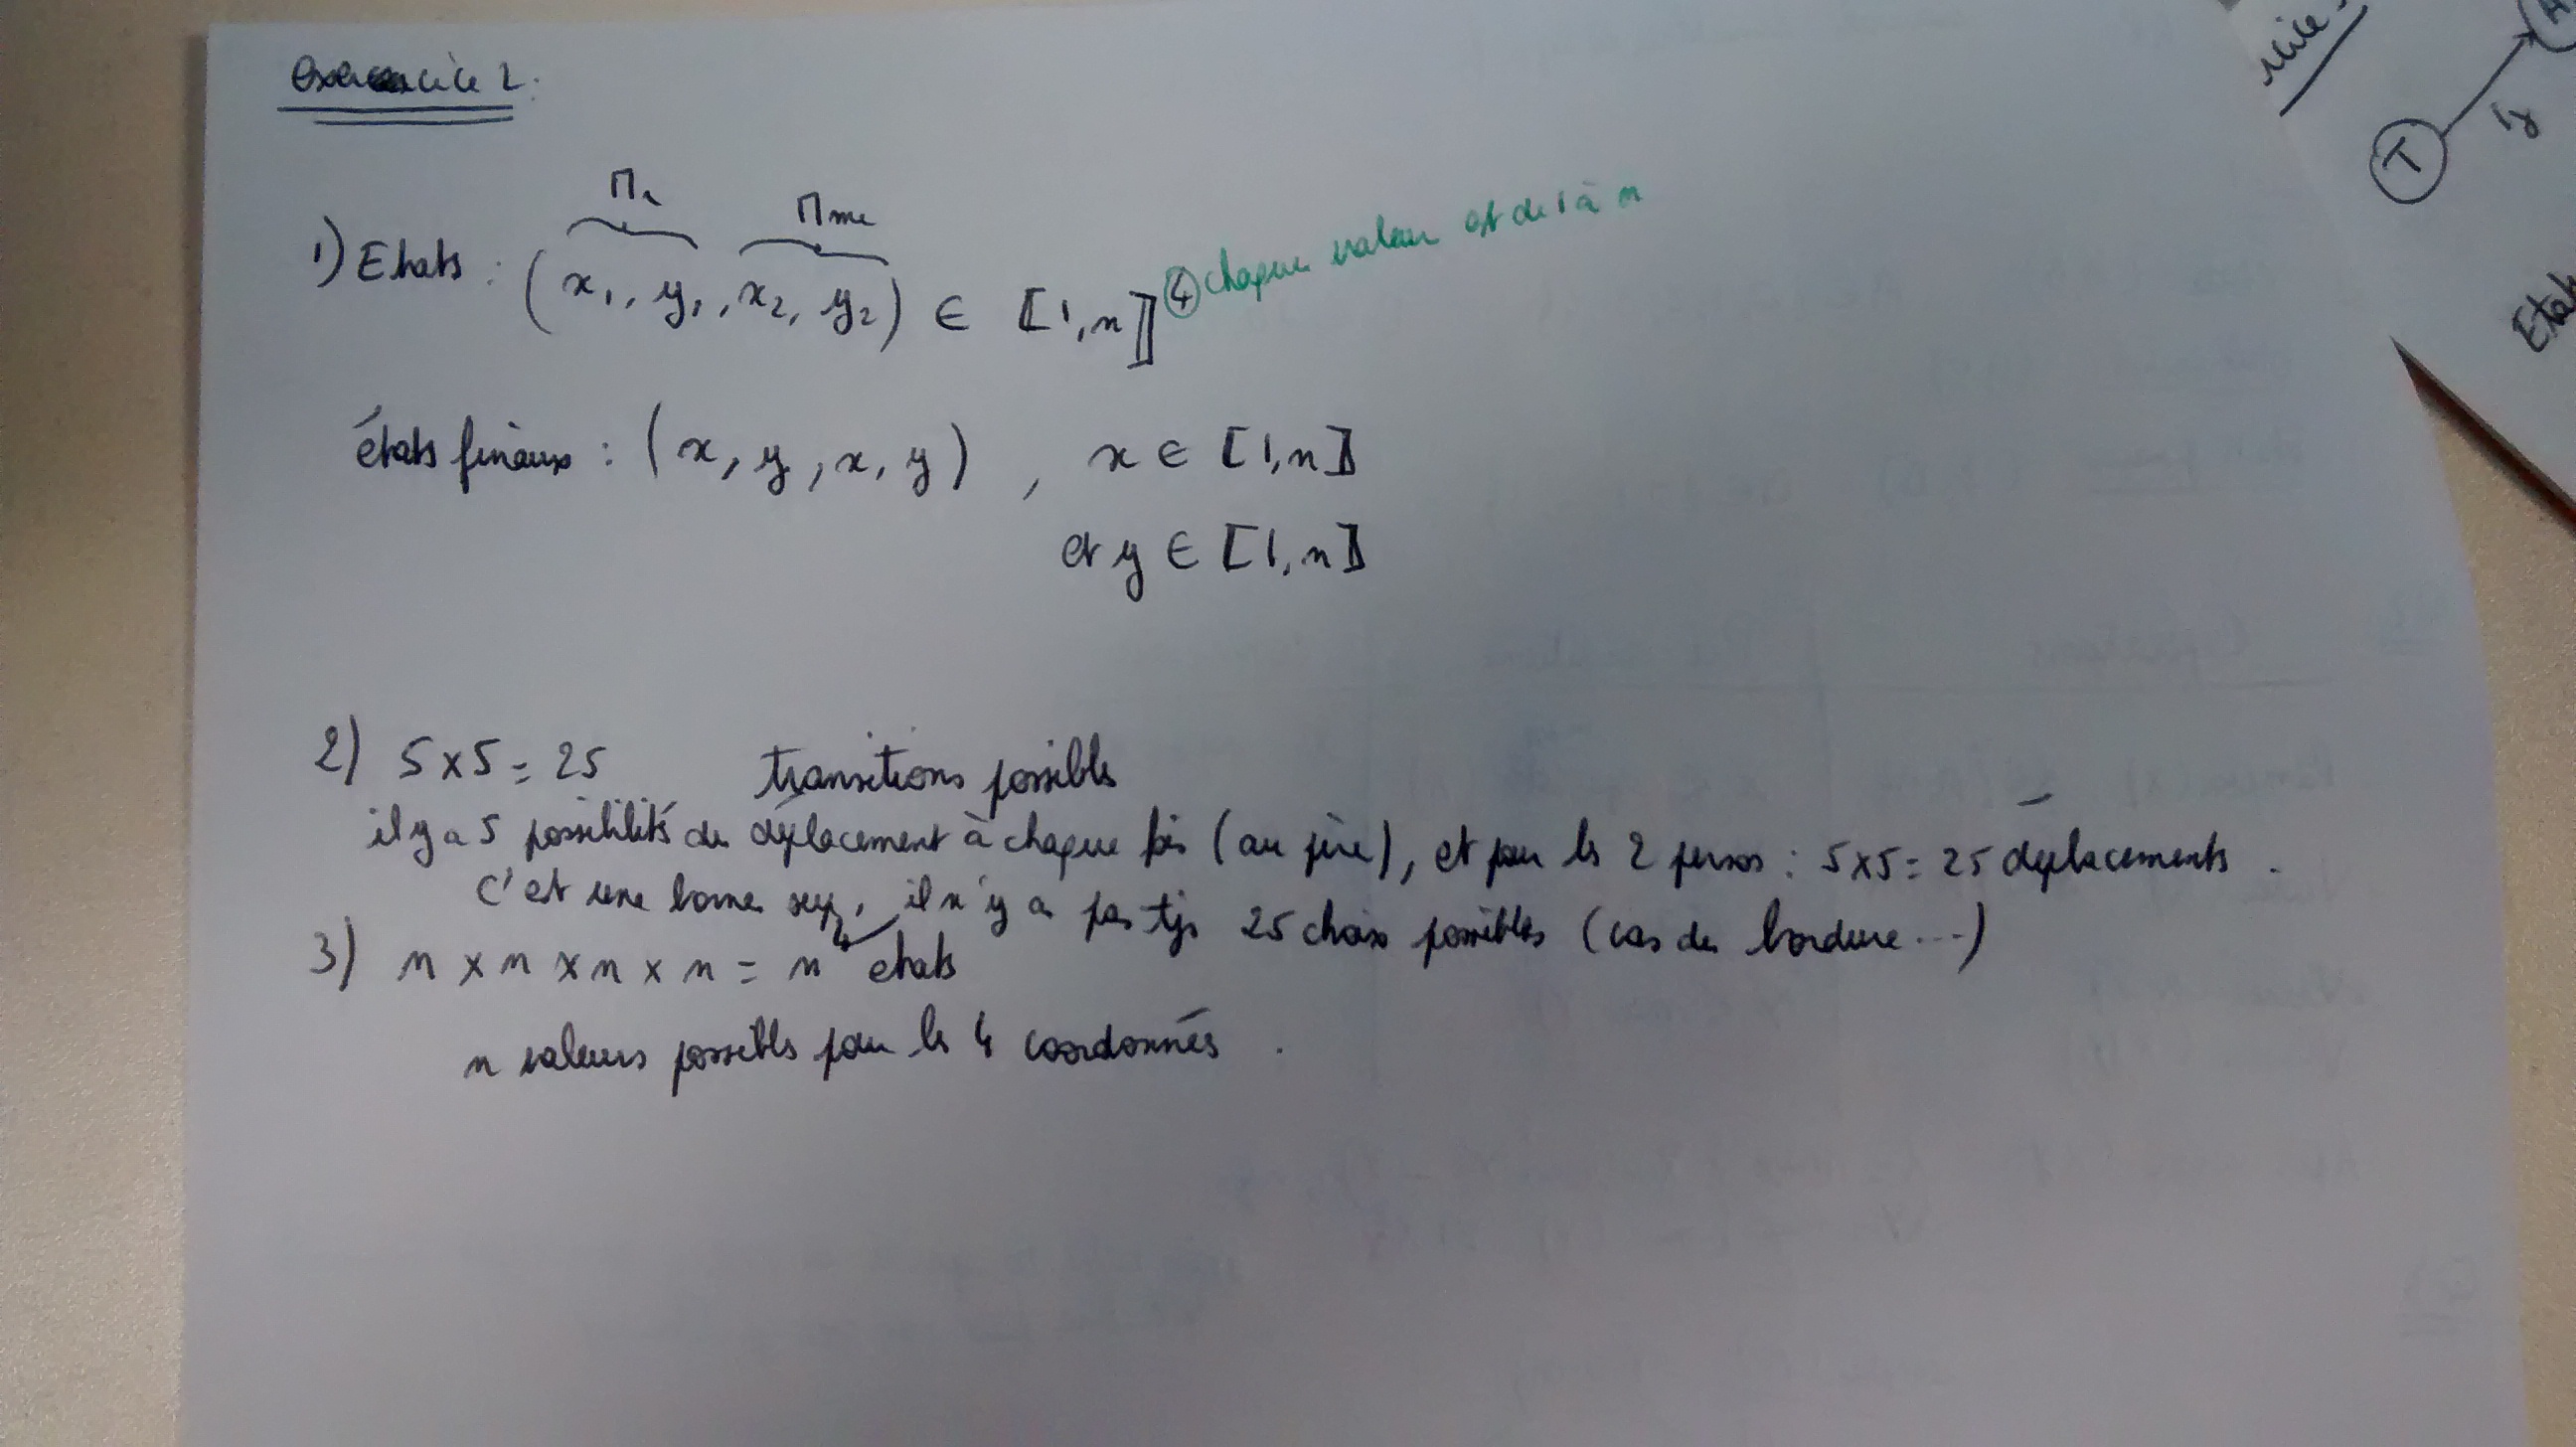 exercice 2:
Mr Mme
1) Etats : (x₁, y₁, x₂, y₂) ∈ ⟦1,n⟧⁴ chaque valeur est de 1 à n
états finaux : (x, y, x, y) , x ∈ ⟦1,n⟧
et y ∈ ⟦1,n⟧
2) 5x5 = 25 transitions possibles
il y a 5 possibilités de déplacement à chaque fois (au pire), et pour les 2 persos : 5x5 = 25 déplacements.
C'est une borne sup, il n'y a pas tjs 25 choix possibles (cas de bordure...)
3) n x n x n x n = n⁴ etats
n valeurs possibles pour les 4 coordonnés.
T
1y
Etats